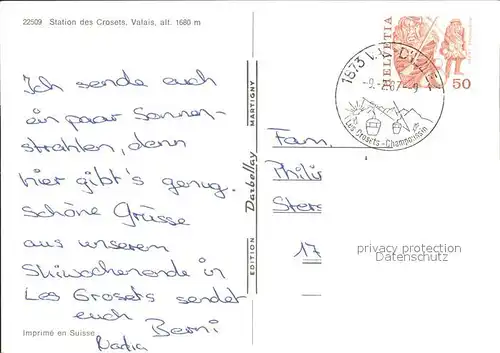 22509 Station des Crosets, Valais, alt. 1680 m
Ich sende euch
ein paar Sonnen-
strahlen, denn
hier gibt's genug.
Schöne Grüsse
aus unserem
Skiwochenende in
Les Crosets sendet
euch Berni
Nadia
Imprimé en Suisse
EDITION Darbellay MARTIGNY
HELVETIA
50
1873 VAL-D'ILLIEZ
Les Crosets - Champoussin
Fam.
17
privacy protection
Datenschutz